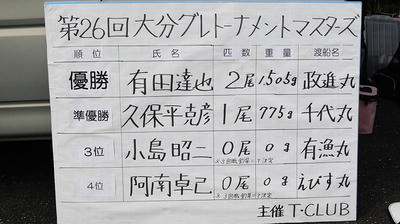 第26回大分グレトーナメントマスターズ
順位 氏名 匹数 重量 渡船名
優勝 有田達也 2尾 1505g 政進丸
準優勝 久保平克彦 1尾 775g 千代丸
3位 小島昭二 0尾 0g 有漁丸
4位 阿南卓己 0尾 0g えびす丸
主催 T-CLUB